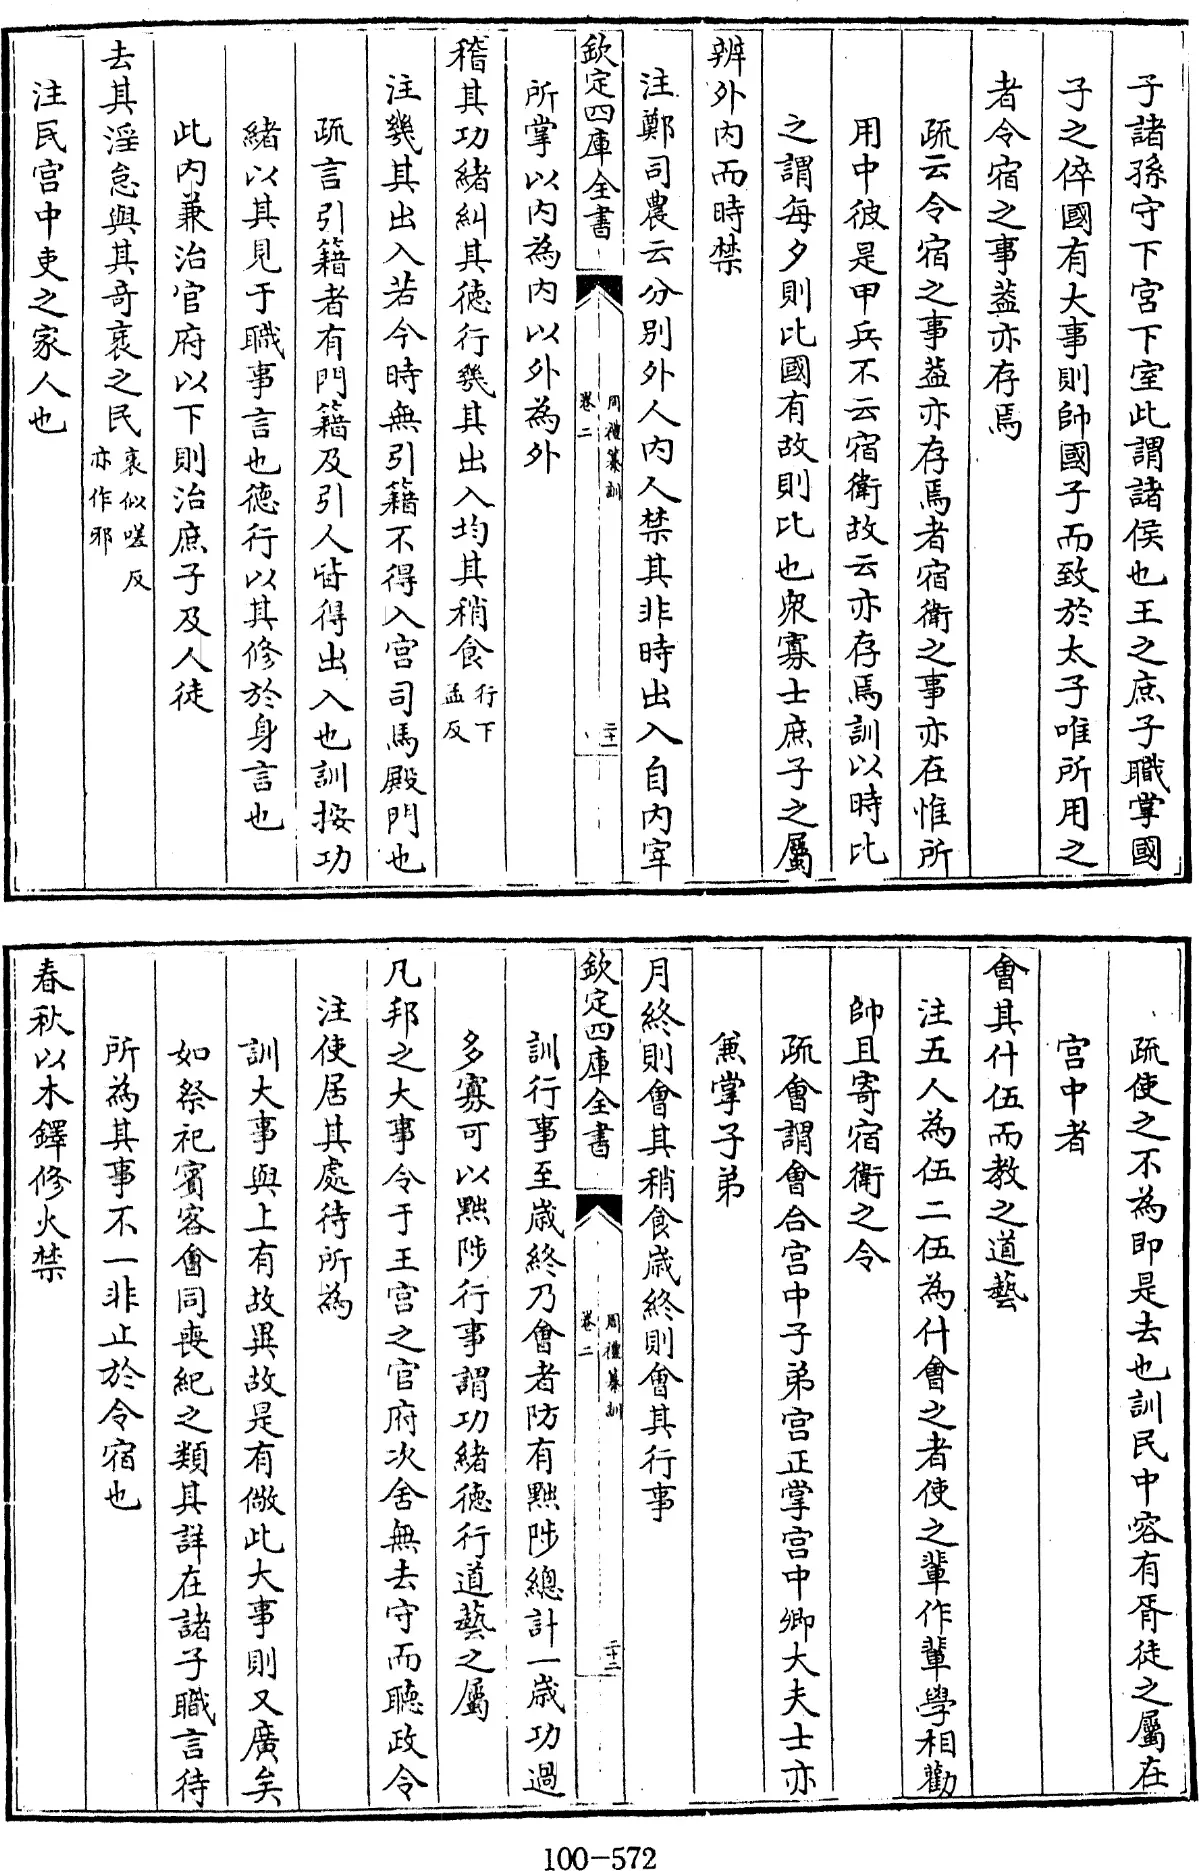 子諸孫守下宫下室此謂諸侯也王之庶子職掌國
子之倅國有大事則帥國子而致於太子唯所用之
者令宿之事葢亦存焉
疏云令宿之事葢亦存焉者宿衛之事亦在惟所
用中彼是甲兵不云宿衛故云亦存焉訓以時比
之謂每夕則比國有故則比也衆寡士庶子之屬
辨外内而時禁
注鄭司農云分别外人内人禁其非時出入自内宰
欽定四庫全書
周禮纂訓
卷二
二十一
所掌以内為内以外為外
稽其功緒糾其徳行幾其出入均其稍食行下
孟反
注幾其出入若今時無引籍不得入宫司馬殿門也
疏言引籍者有門籍及引人皆得出入也訓按功
緒以其見于職事言也徳行以其修於身言也
此内兼治官府以下則治庶子及人徒
去其淫怠與其竒衺之民衺似嗟反
亦作邪
注民宫中吏之家人也
疏使之不為即是去也訓民中容有胥徒之屬在
宫中者
會其什伍而教之道藝
注五人為伍二伍為什會之者使之輩作輩學相勸
帥且寄宿衛之令
疏會謂會合宫中子弟宫正掌宫中卿大夫士亦
兼掌子弟
月終則會其稍食歳終則會其行事
欽定四庫全書
周禮纂訓
卷二
二十二
訓行事至歳終乃會者防有黜陟總計一歳功過
多寡可以黜陟行事謂功緒徳行道藝之屬
凡邦之大事令于王宫之官府次舍無去守而聽政令
注使居其處待所為
訓大事與上有故異故是有儆此大事則又廣矣
如祭祀賓客會同喪紀之類其詳在諸子職言待
所為其事不一非止於令宿也
春秋以木鐸修火禁
100-572